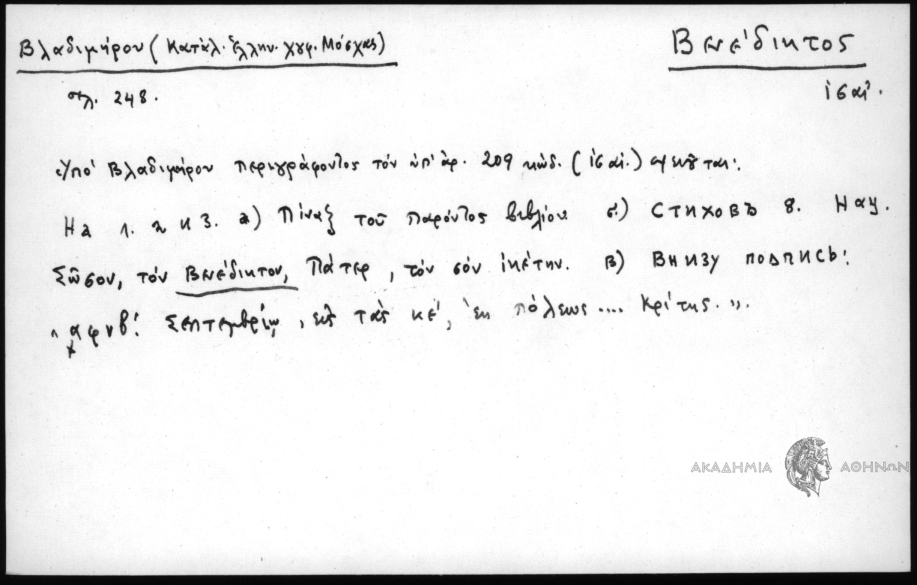 Βλαδιμήρου (Κατάλ. Ἑλλην. χγφ. Μόσχας)
Βενέδικτος
σλ. 248.
ις αἰ.
Ὑπὸ Βλαδιμήρου περιγράφοντος τὸν ὑπ' ἀρ. 209 κώδ. (ις αἰ.)
На л. 2 и 3. а) Πίναξ τοῦ παρόντος βιβλίου б) стиховъ 8. Нач.
Σῶσον, τὸν Βενέδικτον, Πάτερ, τὸν σὸν ἱκέτην. в) внизу подпись:
"αφνβ! Σεπτεμβρίῳ, εἰς τὰς κέ, ἐκ πόλεως .... Κρίτης.".
ΑΚΑΔΗΜΙΑ ΑΘΗΝΩΝ